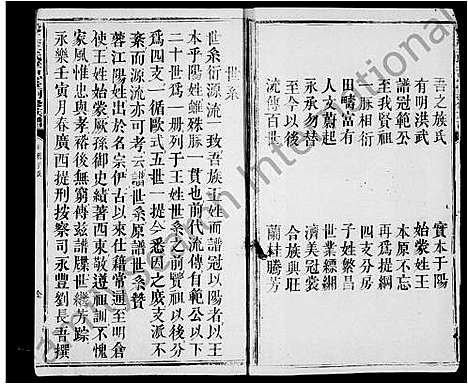 吾之族氏 實本于陽
有明洪武 始蒙姓王
譜冠範公 本原不忘
至我賢祖 再為提綱
一脈相衍 四支分房
田疇富有 子姓繁昌
人文蔚起 世業縹緗
永承勿替 濟美冠裳
至今以後 合族興旺
流傳百世 蘭桂騰芳
世系
世系衍源流 攷吾族王姓而譜冠以陽者以王
本乎陽姓雖殊脈一貫也前代流傳自範公以下
二十世為一册列于王姓世系之前賢祖以後分
為四支一循歐式五世一提令悉因之庶支派不
紊而源流亦可考云譜世系原譜世系贊
蓉江陽姓出於名宗伊古以來仕籍常通至明倉
使王姓始蒙厥孫御史績著西東敬遵祖訓不愧
家風惟忠與孝裕後無窮傳兹譜牒世繼芳踪
永樂壬寅月春廣西提刑按察司永豐劉長吾撰